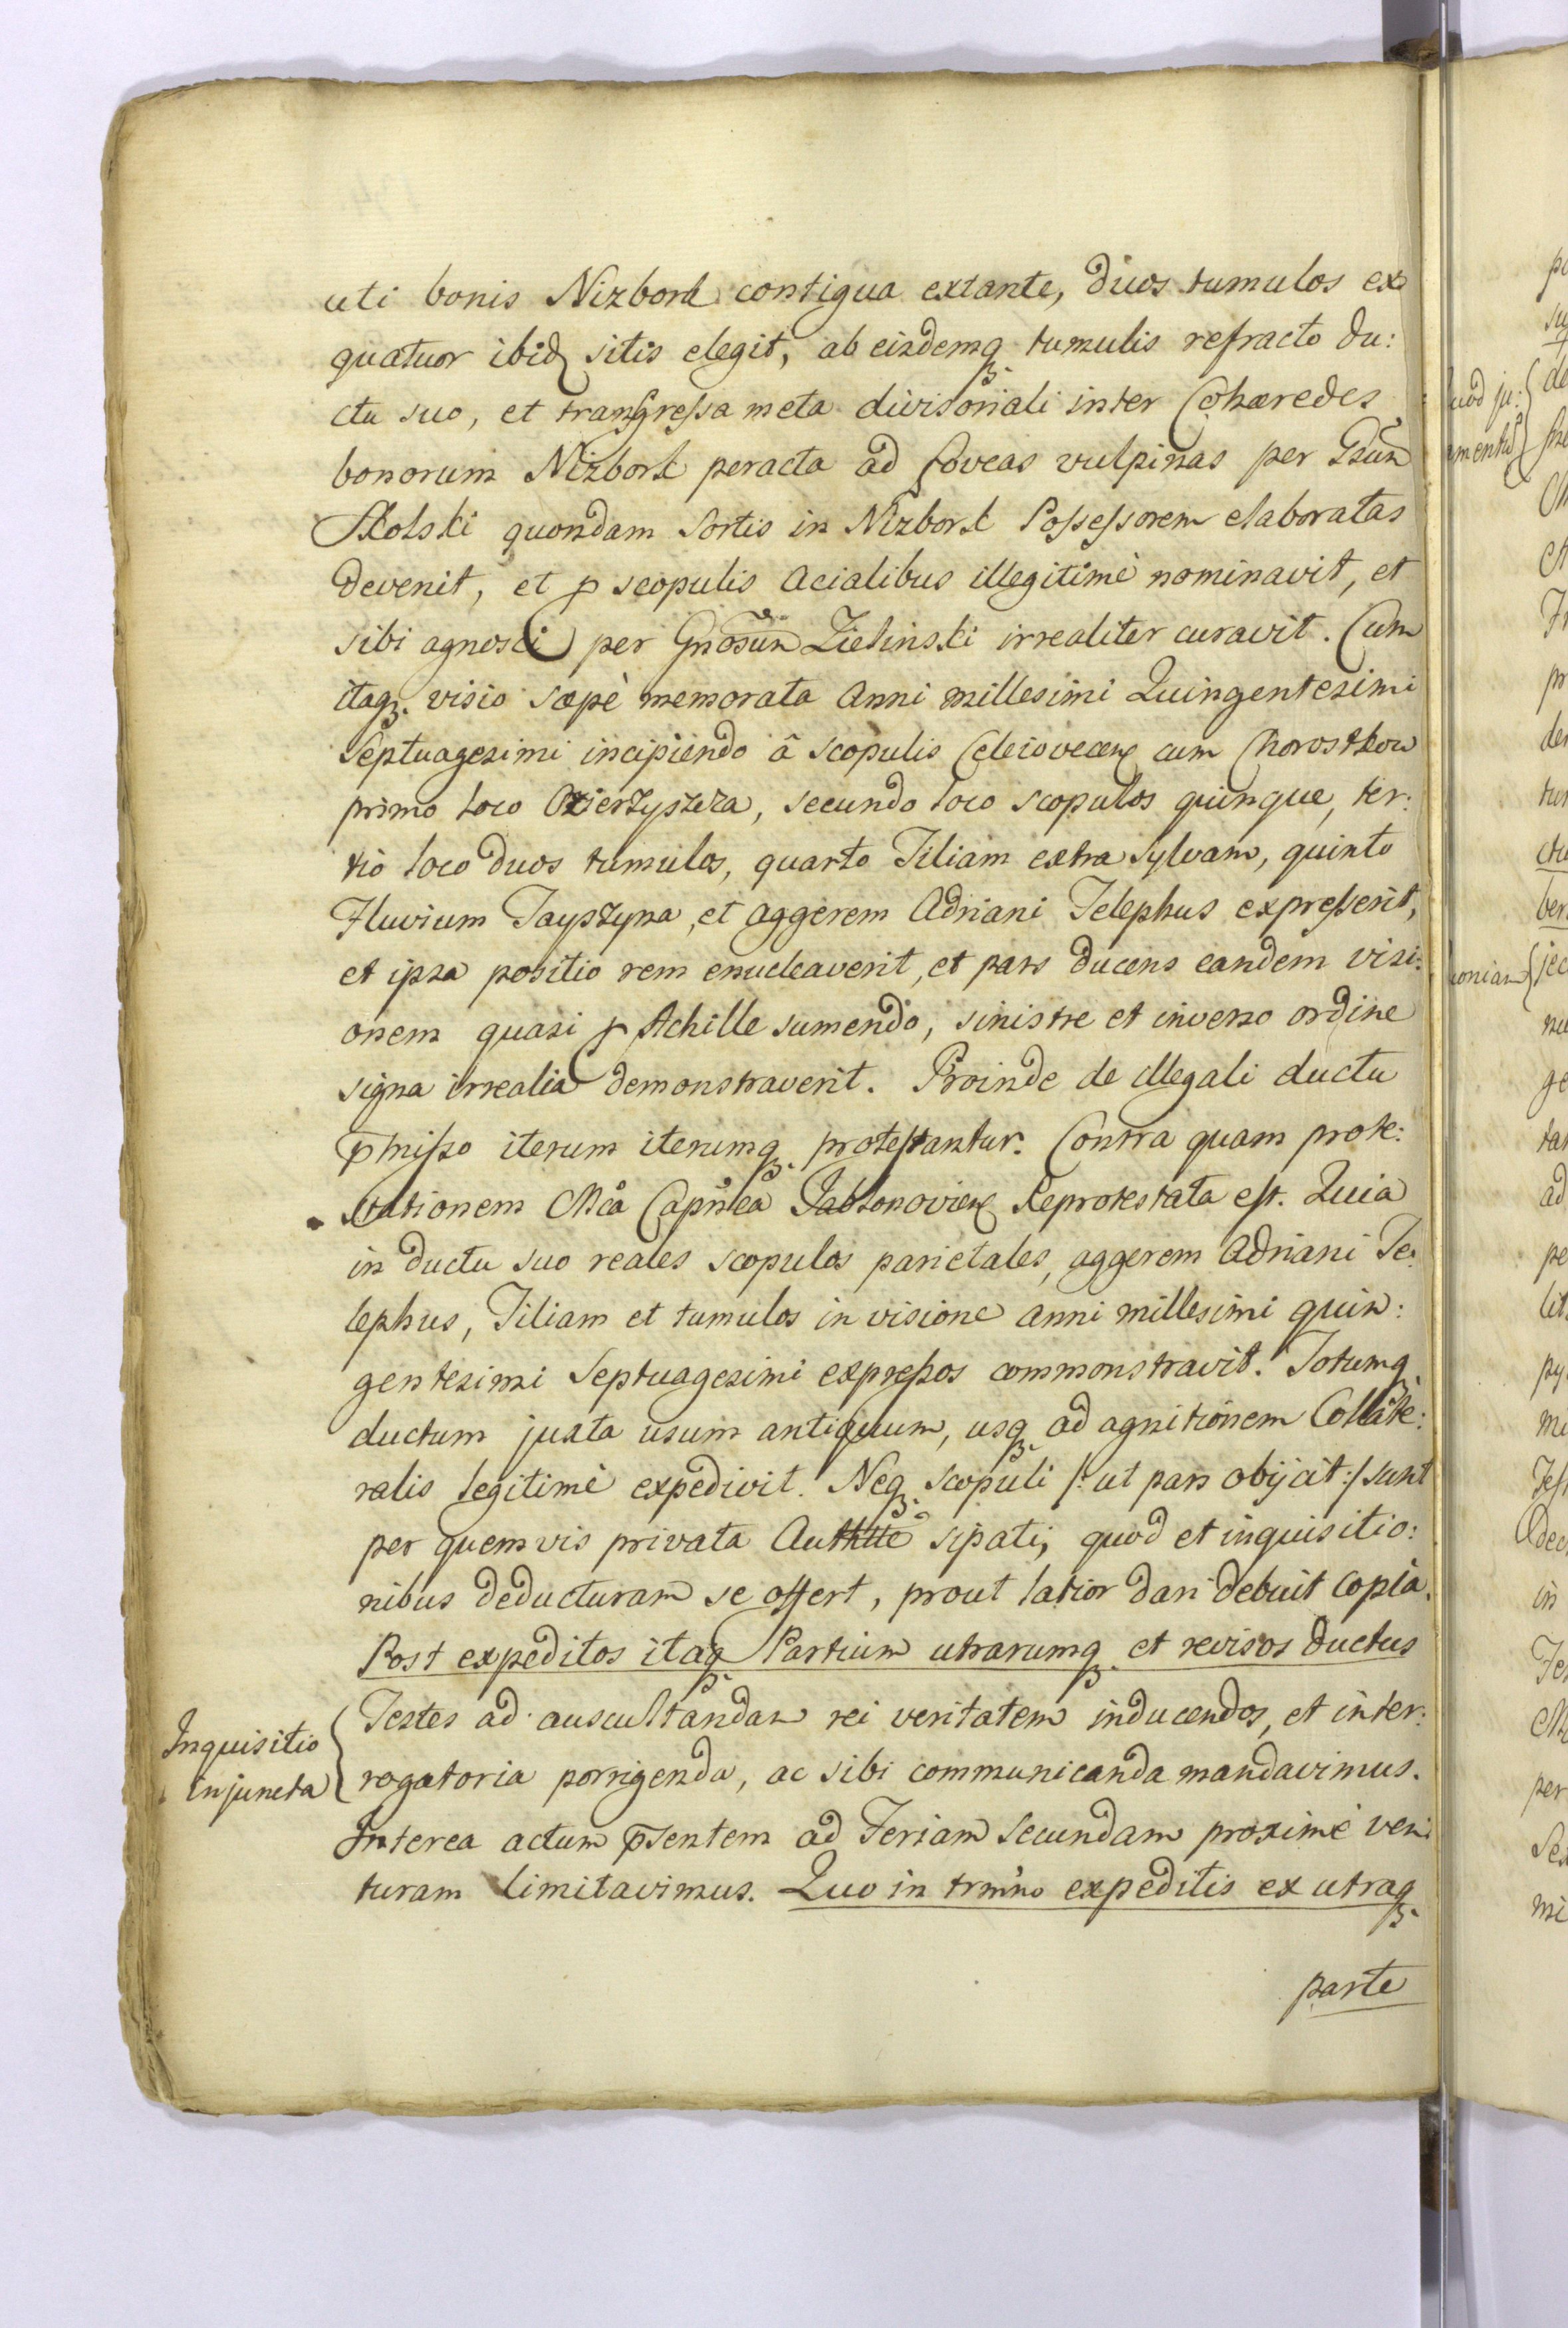 uti bonis Nizbork contigua extante, duos tumulos ex
quatuor ibid sitis elegit, ab eisdemq. tumulis refracto du:
ctu suo, et transgressa meta divisoriali inter Cohæredes
bonorum Nizbork peracta ad foveas vulpinas per Gsum
Skolski quondam Sortis in Nizbork Possessorem elaboratas
devenit, et p scopulis acialibus illegitimè nominavit, et
sibi agnosci per Gnosum Zielinski irrealiter curavit. Cum
itaq. visio sæpè memorata Anni millesimi Quingentesimi
Septuagesimi incipiendo â scopulis Celeioviecen cum Chorostkow
primo loco Ozierzyszcza, secundo loco scopulos quinque, ter:
tio loco duos tumulos, quarto Tiliam extra sylvam, quinto
Fluvium Tayszyna, et aggerem Adriani Telephus expresserit,
et ipsa positio rem enucleaverit, et pars ducens eandem visi:
onem quasi p Achille sumendo, sinistre et inverso ordine
signa irrealia demonstraverit. Proinde de illegali ductu
pmisso iterum iterumq. protestantur. Contra quam prote:
stationem Mca Capnea Jablonovien Reprotestata est. Quia
in ductu suo reales scopulos parietales, aggerem Adriani Te:
lephus, Tiliam et tumulos in visione anni millesimi quin:
gentesimi Septuagesimi expressos commonstravit. Totumq.
ductum juxta usum antiquum, usq. ad agnitionem Collate:
ralis legitimè expedivit. Neq. scopuli /: ut pars obijcit :/ sunt
per quemvis privata Authtte sipati, quod et inquisitio:
nibus deducturam se offert, prout latior dari debuit copia.
Post expeditos itaq. Partium utrarumq. et revisos ductus
Inquisitio
injuncta
Testes ad auscultandam rei veritatem inducendos, et inter:
rogatoria porrigenda, ac sibi communicanda mandavimus.
Interea actum psentem ad Feriam secundam proximè ven:
turam limitavimus. Quo in trmino expeditis ex utraq.
parte